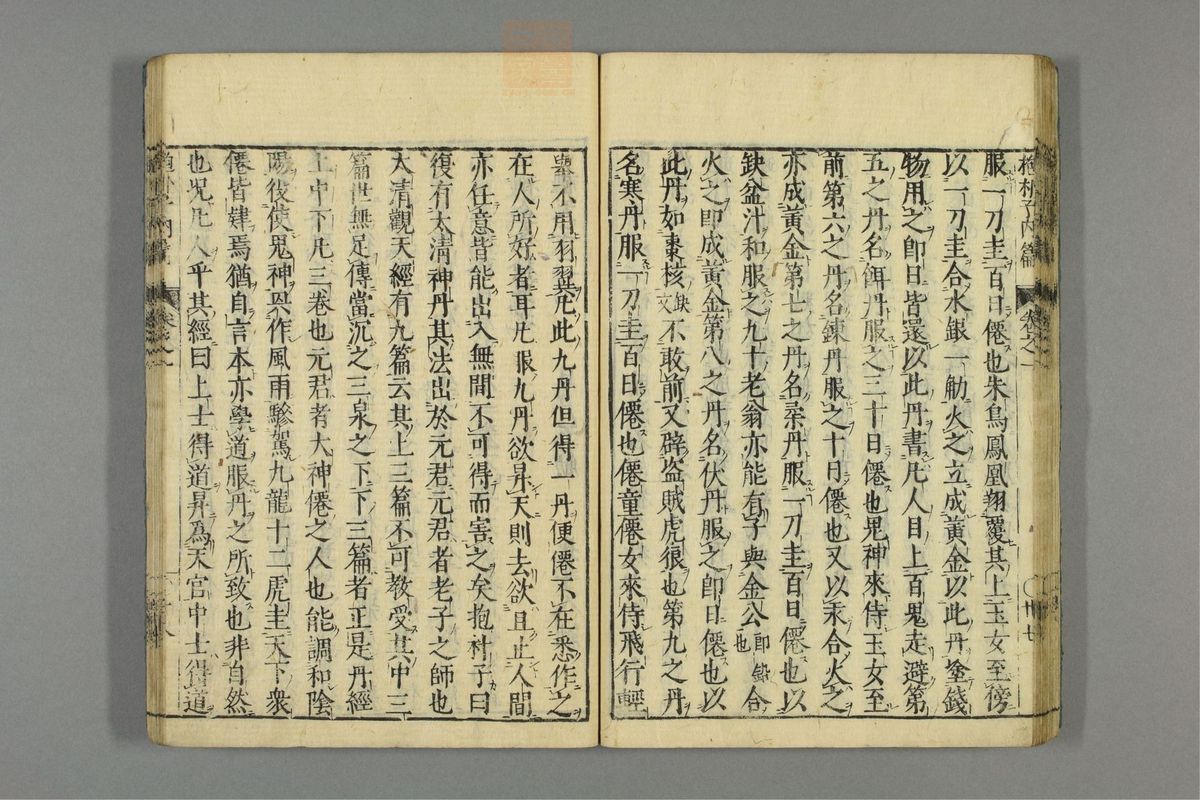 抱朴子内篇 卷之一 〇廿七
服一刀圭百日僊也朱鳥鳳凰翔覆其上玉女至傍
以一刀圭合水銀一觔火之立成黃金以此丹塗錢
物用之卽日皆還以此丹書凡人目上百鬼走避第
五之丹名餌丹服之三十日僊也鬼神來侍玉女至
前第六之丹名鍊丹服之十日僊也又以汞合火之
亦成黃金第七之丹名柔丹服一刀圭百日僊也以
缺盆汁和服之九十老翁亦能有子與金公卽鉛也合
火之卽成黃金第八之丹名伏丹服之卽日僊也以
此丹如棗核缺文不敢前又辟盜賊虎狼也第九之丹
名寒丹服一刀圭百日僊也僊童僊女來侍飛行輕
舉不用羽翼凡此九丹但得一丹便僊不在悉作之
在人所好者耳凡服九丹欲昇天則去欲且止人間
亦任意皆能出入無間不可得而害之矣抱朴子曰
復有太清神丹其法出於元君元君者老子之師也
太清觀天經有九篇云其上三篇不可敎受其中三
篇世無足傳當沉之三泉之下下三篇者正是丹經
上中下凡三卷也元君者大神僊之人也能調和陰
陽役使鬼神風雨驂駕九龍十二虎圭天下衆
僊皆肄焉猶自言本亦學道服丹之所致也非自然
也况凡人乎其經曰上士得道昇爲天官中士得道